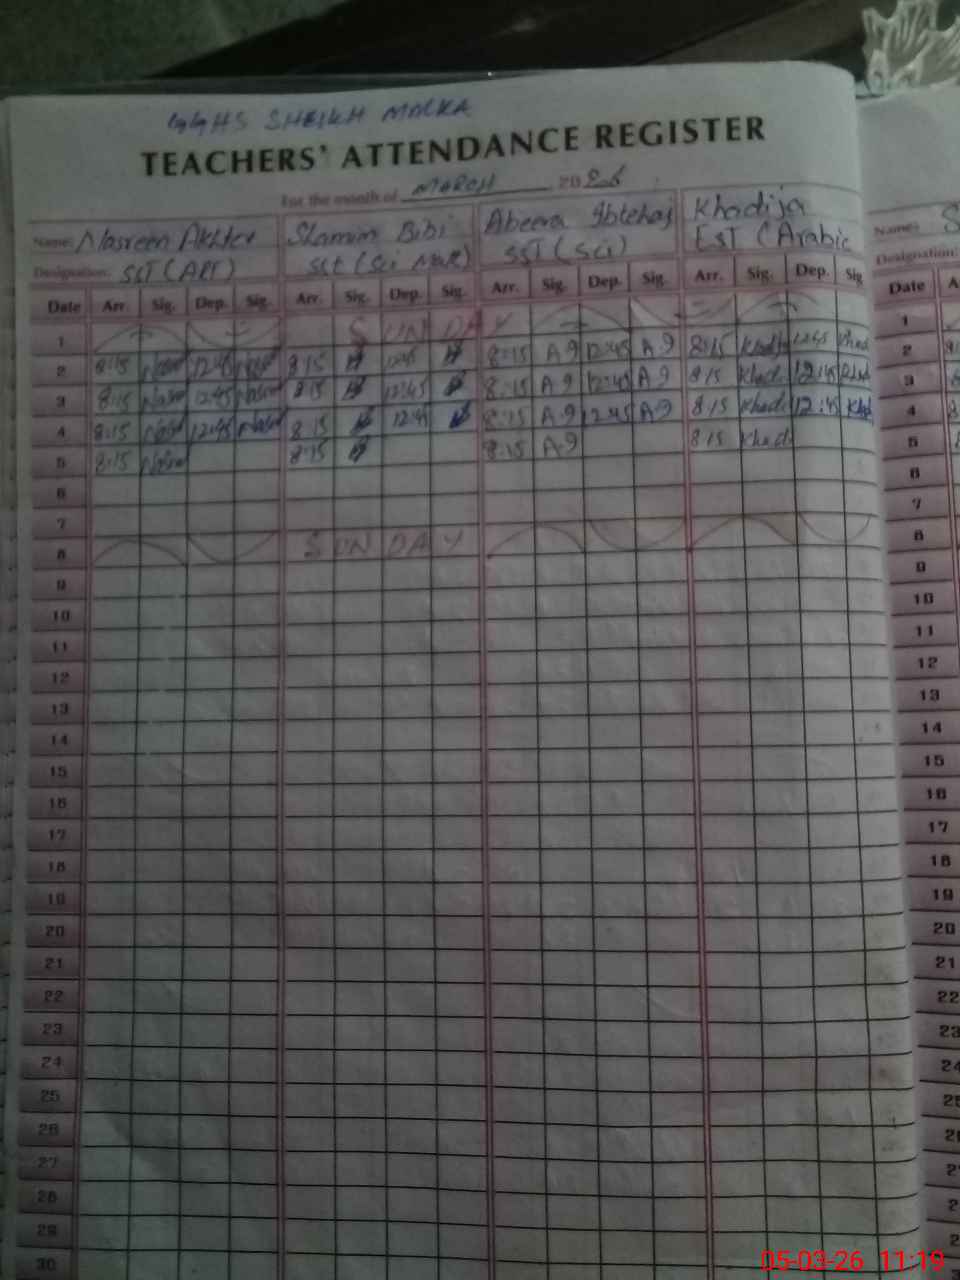 GGHS SHEIKH MALKA
TEACHERS' ATTENDANCE REGISTER
For the month of MARCH 2026
Name: Nasreen Akhter Shamim Bibi Abeera Ibtehaj Khadija Name: S
Designation: SST (ART) SST (Sci SST (Sci) EST (Arabic Designation:
Date Arr. Sig. Dep. Sig. Arr. Sig. Dep. Sig. Arr. Sig. Dep. Sig. Arr. Sig. Dep. Sig Date A
1 SUNDAY 1
2 8:15 12:45 8:15 8:15 A-9 12:45 A-9 8:15 12:45 2
3 8:15 12:45 8:15 12:45 8:15 A-9 12:45 A-9 8:15 Khad 12:45 3
4 8:15 12:45 8:15 12:45 8:15 A-9 12:45 A-9 8:15 Khad 12:45 Khad 4
5 8:15 8:15 8:15 A-9 8:15 Khad 5
6 6
7 7
8 SUNDAY 8
9 9
10 10
11 11
12 12
13 13
14 14
15 15
16 16
17 17
18 18
19 19
20 20
21 21
22 22
23 23
24 24
25 25
26 26
27
28
29
30
05-03-26 11:19